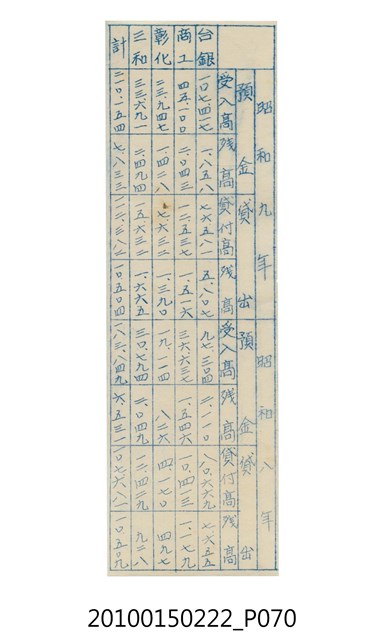 昭和九年
昭和八年
預金 貸出 預金 貸出
受入高 残高 貸付高 残高 受入高 残高 貸付高 残高
台銀 一〇七、四一七 一、八五八 七六、五八一 五、八〇七 九七、三〇四 二、一一〇 八〇、六六九 七、六五五
商工 四五、一〇〇 二、〇四三 二二、五三七 一、五一六 三六、六三七 一、五四六 一〇、四一三 一、一七九
彰化 二三、九四七 一、四二八 七、六三二 一、三九〇 一九、一一四 八二六 四、一七〇 四九七
三和 三三、六九一 二、四九四 五、六三二 一、六六五 三〇、七九四 二、〇四九 一二、四二九 九二八
計 二一〇、一五四 七、八三三 一一二、三八二 一〇、五〇四 一八三、八四九 六、五三一 一〇七、六八一 一〇、五〇九
20100150222_P070